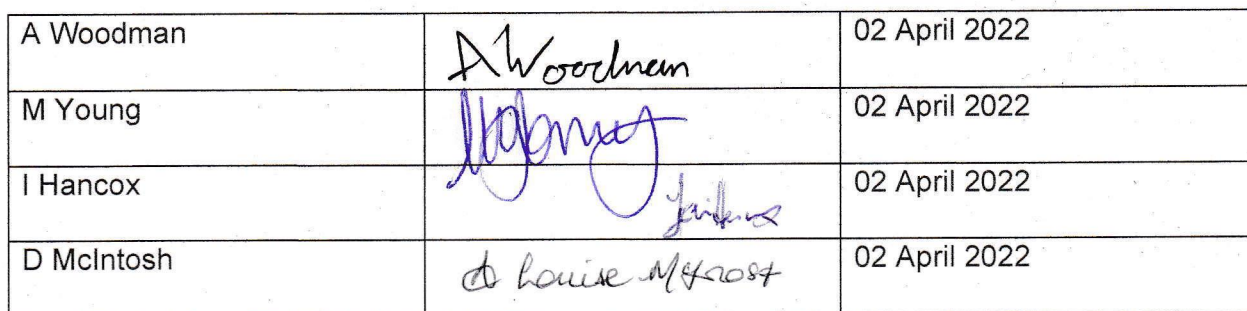 A Woodman A Woodman 02 April 2022
M Young 02 April 2022
I Hancox 02 April 2022
D McIntosh Louise 02 April 2022